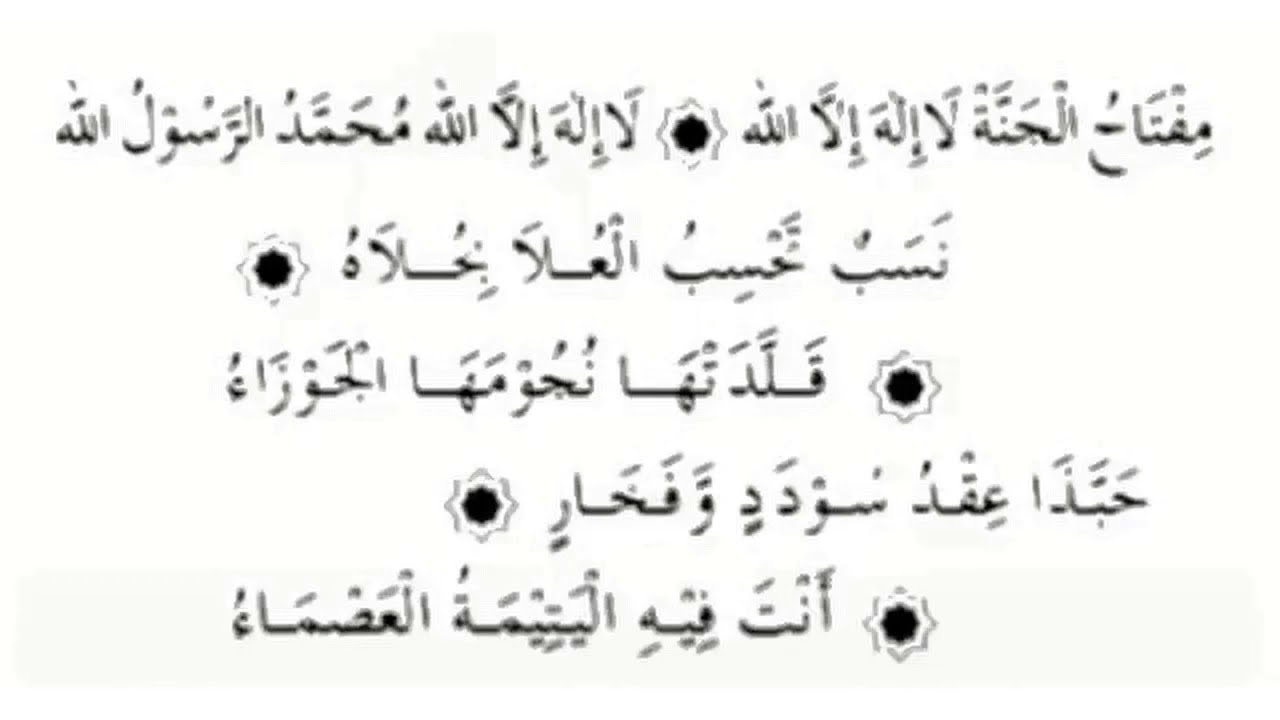 مِفْتَاحُ الْجَنَّةْ لَاإِلٰهَ إِلَّا اللّٰه ۞ لَاإِلٰهَ إِلَّا اللّٰه مُحَمَّدُ الرَّسُوْلُ اللّٰه
نَسَبٌ تَّحْسِبُ الْعُـلَا بِحُـلَاهُ ۞
۞ قَـلَّدَتْهَـا نُجُوْمَهَـا الْجَوْزَاءُ
حَبَّذَا عِقْدُ سُوْدَدٍ وَّفَخَـارٍ ۞
۞ أَنْتَ فِيْهِ الْيَتِيْمَـةُ الْعَصْمَـاءُ